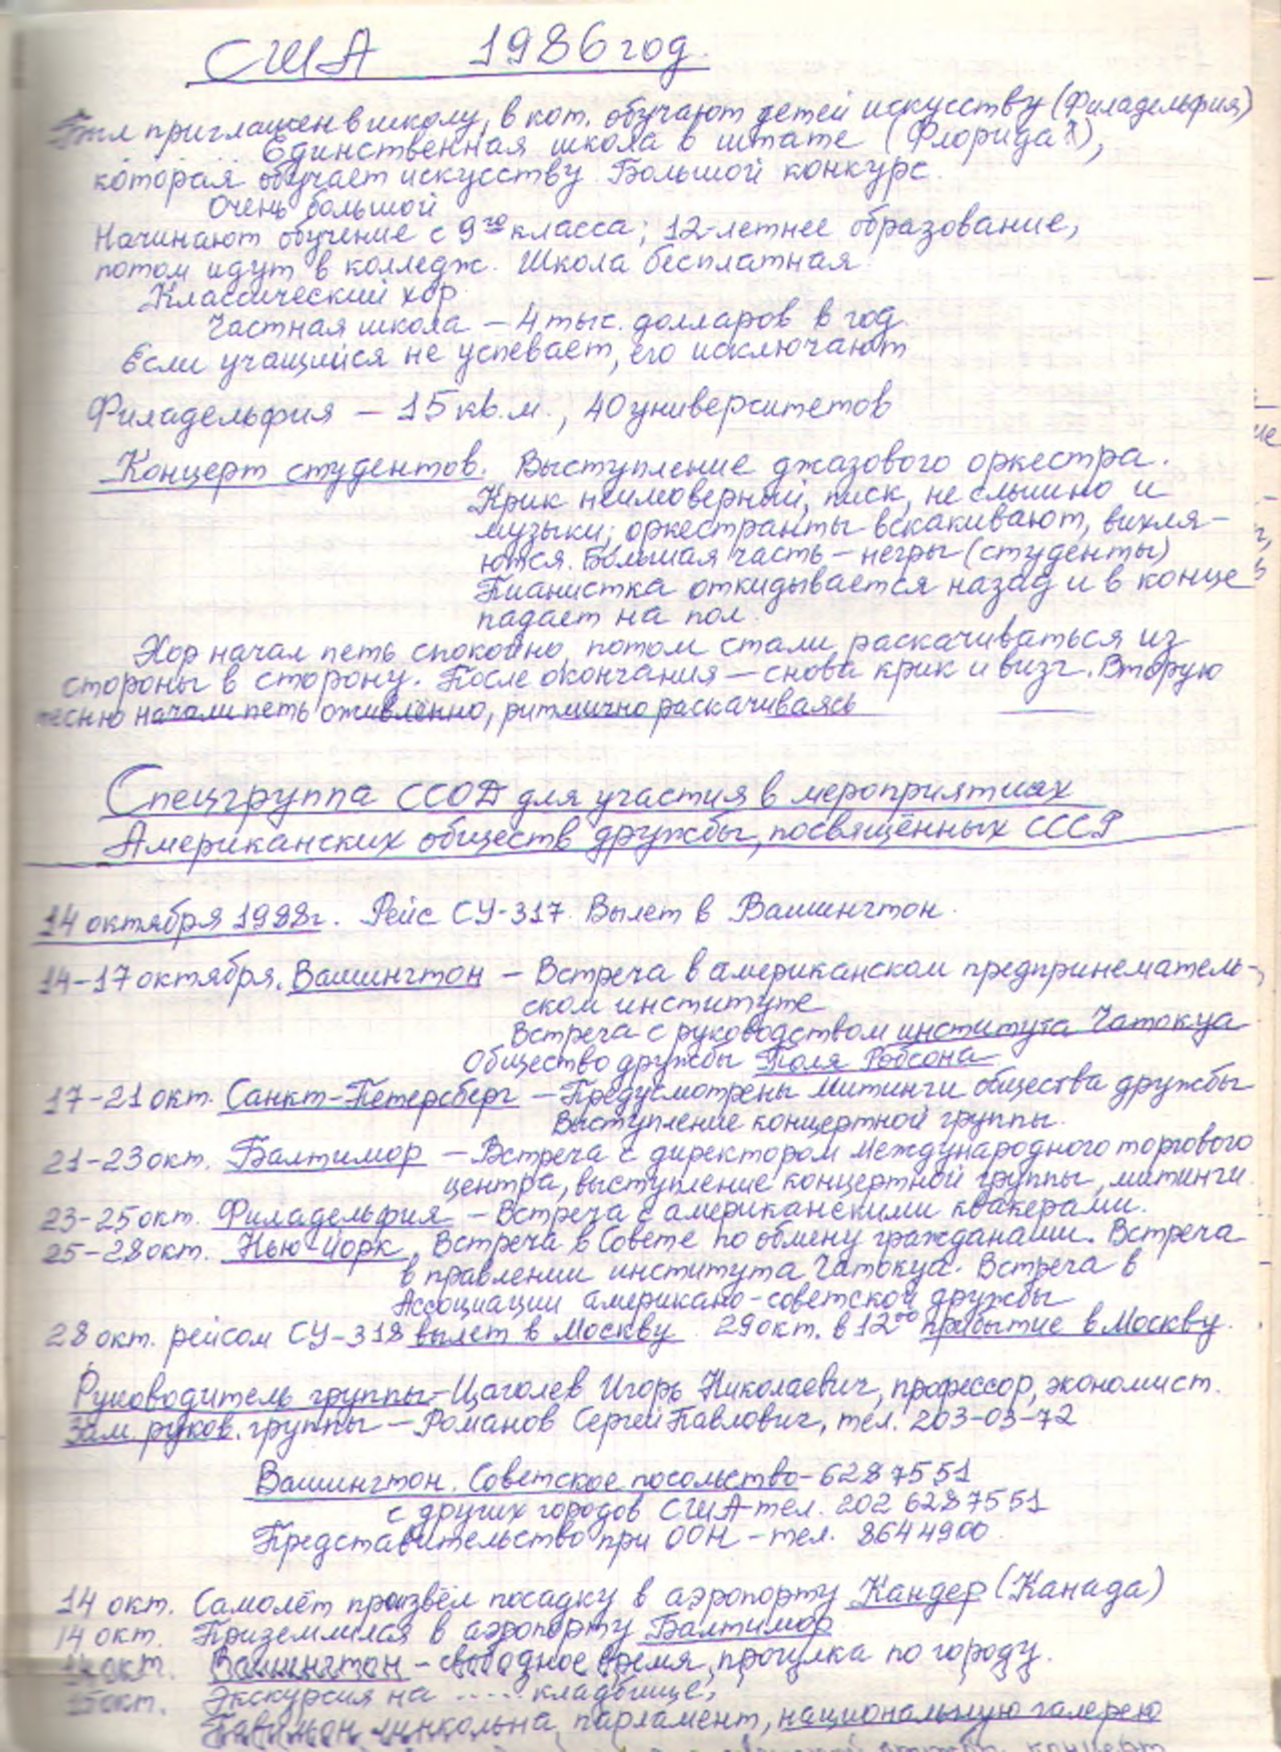 США 1986 год.
Был приглашен в школу, в кот. обучают детей искусству (Филадельфия)
Единственная школа в штате (Флорида?),
которая обучает искусству. Большой конкурс.
Очень большой
Начинают обучение с 9го класса; 12-летнее образование,
потом идут в колледж. Школа бесплатная.
Классический хор.
Частная школа – 4 тыс. долларов в год.
Если учащийся не успевает, его исключают
Филадельфия – 15 кв.м., 40 университетов
Концерт студентов. Выступление джазового оркестра.
Крик неимоверный, писк, не слышно и
музыки; оркестранты вскакивают, вихля-
ются. Большая часть – негры (студенты)
Пианистка откидывается назад и в конце
падает на пол.
Хор начал петь спокойно, потом стали раскачиваться из
стороны в сторону. После окончания – снова крик и визг. Вторую
песню начали петь оживленно, ритмично раскачиваясь
Спецгруппа ССОД для участия в мероприятиях
Американских обществ дружбы, посвящённых СССР
14 октября 1988г. Рейс СУ-317. Вылет в Вашингтон.
14-17 октября. Вашингтон – Встреча в американском предпринематель-
ском институте
Встреча с руководством института Чатокуа
Общество дружбы Поля Робсона
17-21 окт. Санкт-Петерсберг – Предусмотрены митинги общества дружбы
Выступление концертной группы.
21-23 окт. Балтимор – Встреча с директором Международного торгового
центра, выступление концертной группы, митинги.
23-25 окт. Филадельфия – Встреча с американскими квакерами.
25-28 окт. Нью-Йорк, Встреча в Совете по обмену гражданами. Встреча
в правлении института Чатокуа. Встреча в
Ассоциации американо-советской дружбы
28 окт. рейсом СУ-318 вылет в Москву. 29 окт. в 12 00 прибытие в Москву.
Руководитель группы – Цаголев Игорь Николаевич, профессор, экономист.
Зам. руков. группы – Романов Сергей Павлович, тел. 203-03-72
Вашингтон. Советское посольство – 6287551
с других городов США тел. 202 6287551
Представительство при ООН – тел. 8644900.
14 окт. Самолёт произвёл посадку в аэропорту Кандер (Канада)
14 окт. Приземлился в аэропорту Балтимор
14 окт. Вашингтон – свободное время, прогулка по городу.
15 окт. Экскурсия на ..... кладбище,
Павильон Линкольна, парламент, национальную галерею